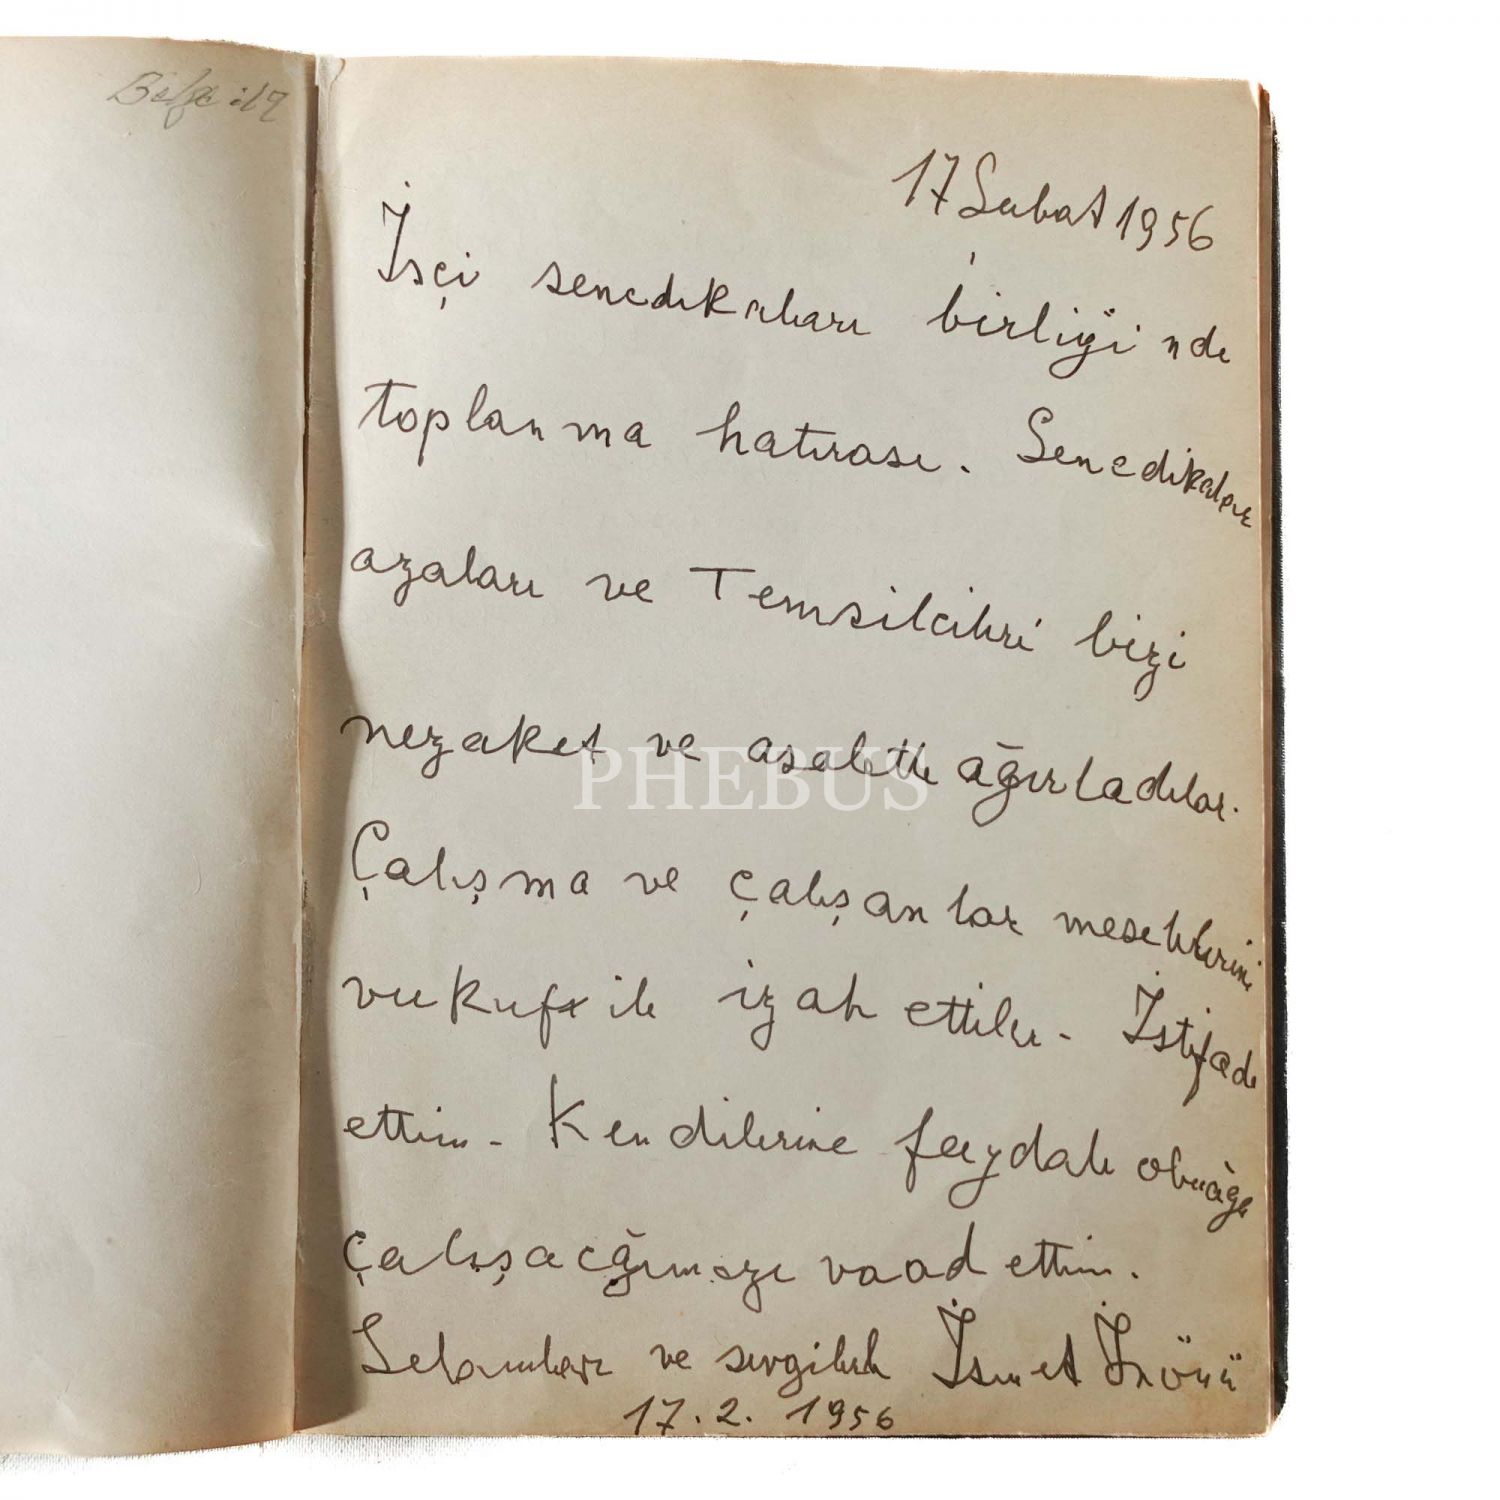 17 Şubat 1956
İşçi senedikaları birliği'nde
toplanma hatırası. Senedikalar
azaları ve Temsilcileri bizi
nezaket ve asaletle ağırladılar.
Çalışma ve çalışanlar meselelerini
vukuf ile izah ettiler. İstifade
ettim. Kendilerine faydalı olmağa
çalışacağımızı vaad ettim.
Selamlar ve sevgilerle İsmet İnönü
17.2.1956
PHEBUS